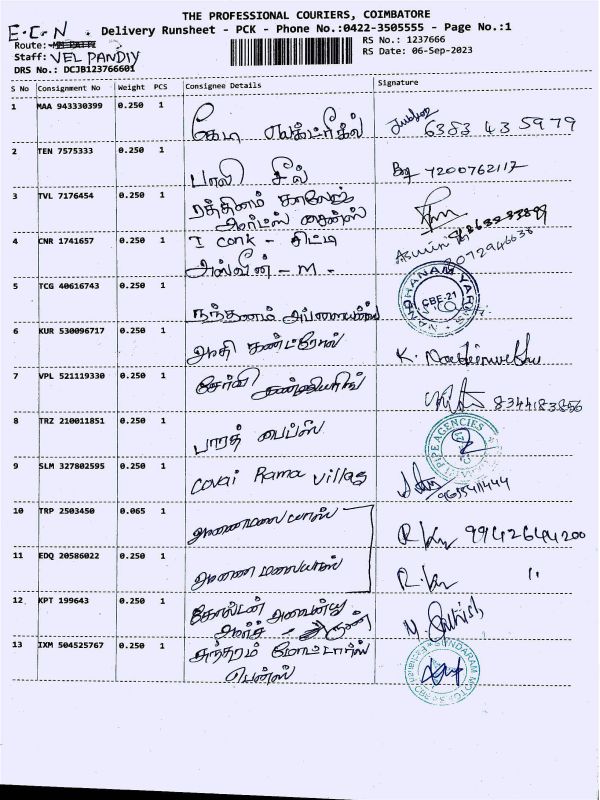 THE PROFESSIONAL COURIERS, COIMBATORE
E-C-N Delivery Runsheet - PCK - Phone No.:0422-3505555 - Page No.:1
Route:
RS No.: 1237666
Staff: VEL PANDIY
RS Date: 06-Sep-2023
DRS No.: DCJB123766601
S No Consignment No Weight PCS Consignee Details Signature
1 MAA 943330399 0.250 1 கேடி எலக்ட்ரிகல் 6383 43 5979
2 TEN 7575333 0.250 1 பாலி சீல் 7200762117
3 TVL 7176454 0.250 1 ரத்தினம் காலேஜ்
ஆர்ட்ஸ் சைன்ஸ்
4 CNR 1741657 0.250 1 I conk - சிட்டி Aswin
அஸ்வின் - M. 8072946638
5 TCG 40616743 0.250 1 நந்தனம் NANDHANAM YARNS CBE-21
6 KUR 530096717 0.250 1 ஆதி கண்ட்ரோல் K.
7 VPL 521119330 0.250 1 8344183856
8 TRZ 210011851 0.250 1 பாரத் பைப்ஸ் PIPE AGENCIES
9 SLM 327802595 0.250 1 Covai Rama Villas 9655411444
10 TRP 2503450 0.065 1 அண்ணாமலையார் 9942644200
11 EDQ 20586022 0.250 1 "
12 KPT 199643 0.250 1 கோல்டன் M. Sathish
13 IXM 504525767 0.250 1 சுந்தரம் மோட்டார்ஸ் SUNDARAM MOTORS
பென்ஸ்